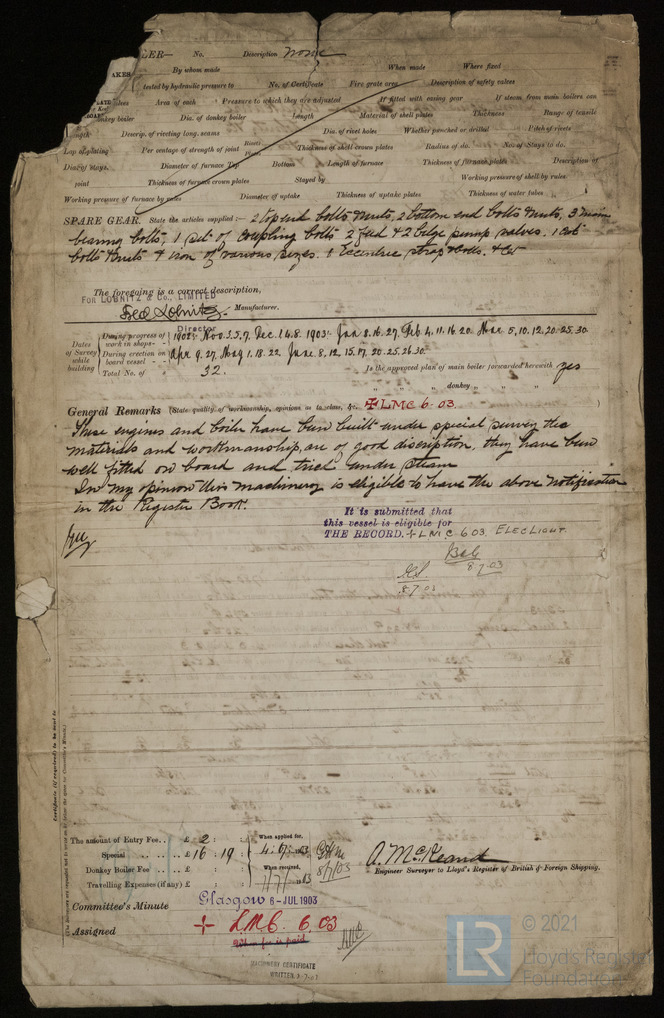 LER— No. Description None
By whom made When made Where fixed
AKES tested by hydraulic pressure to No. of Certificate Fire grate area Description of safety valves
Area of each Pressure to which they are adjusted If fitted with easing gear If steam from main boilers can
donkey boiler Dia. of donkey boiler Length Material of shell plates Thickness Range of tensile
Descrip. of riveting long. seams Dia. of rivet holes Whether punched or drilled Pitch of rivets
Lap of plating Per centage of strength of joint Rivets Thickness of shell crown plates Radius of do. No. of Stays to do.
Dia. of stays. Diameter of furnace Top Bottom Length of furnace Thickness of furnace plates Description of
joint Thickness of furnace crown plates Stayed by Working pressure of shell by rules
Working pressure of furnace by rules Diameter of uptake Thickness of uptake plates Thickness of water tubes
SPARE GEAR. State the articles supplied:— 2 top end bolts & nuts, 2 bottom end bolts & nuts, 3 main
bearing bolts, 1 set of coupling bolts 2 feed & 2 bilge pump valves.
bolts & nuts & iron of various sizes. 1 Eccentric strap & bolts. &c
The foregoing is a correct description,
FOR LOBNITZ & CO., LIMITED
Fred Lobnitz. Manufacturer.
Director
Dates of Survey while building
During progress of work in shops - - 1902: Nov. 3. 5. 7. Dec. 1. 4. 8. 1903: Jan 8. 16. 27. Feb 4. 11. 16. 20. Mar. 5. 10. 12. 20. 25. 30.
During erection on board vessel - - Apr 9. 27. May 1. 18. 22. June. 8. 12. 15. 17. 20. 25. 26. 30.
Total No. of 32. Is the approved plan of main boiler forwarded herewith yes
" " " donkey " " "
General Remarks (State quality of workmanship, opinions as to class, &c. +LMC 6-03.
These engines and boiler have been built under special survey the
materials and workmanship, are of good discription, they have been
well fitted on board and tried under steam
In my opinion this machinery is eligible to have the above notification
in the Register Book.
It is submitted that
this vessel is eligible for
THE RECORD. +LMC 6 03. ELEC LIGHT.
8.7.03
8.7.03
Certificate (if required) to be sent to
The amount of Entry Fee. . £ 2 : : When applied for,
Special . . . . . £ 16 : 19 : 4. 7. 1903
Donkey Boiler Fee . . . £ : : When received,
Travelling Expenses (if any) £ : :
8/7/03
A. McKeand
Engineer Surveyor to Lloyd's Register of British & Foreign Shipping.
Committee's Minute Glasgow 6-JUL 1903
Assigned + L.M.C. 6, 03
When fee is paid
MACHINERY CERTIFICATE
WRITTEN
LR © 2021
Lloyd's Register
Foundation